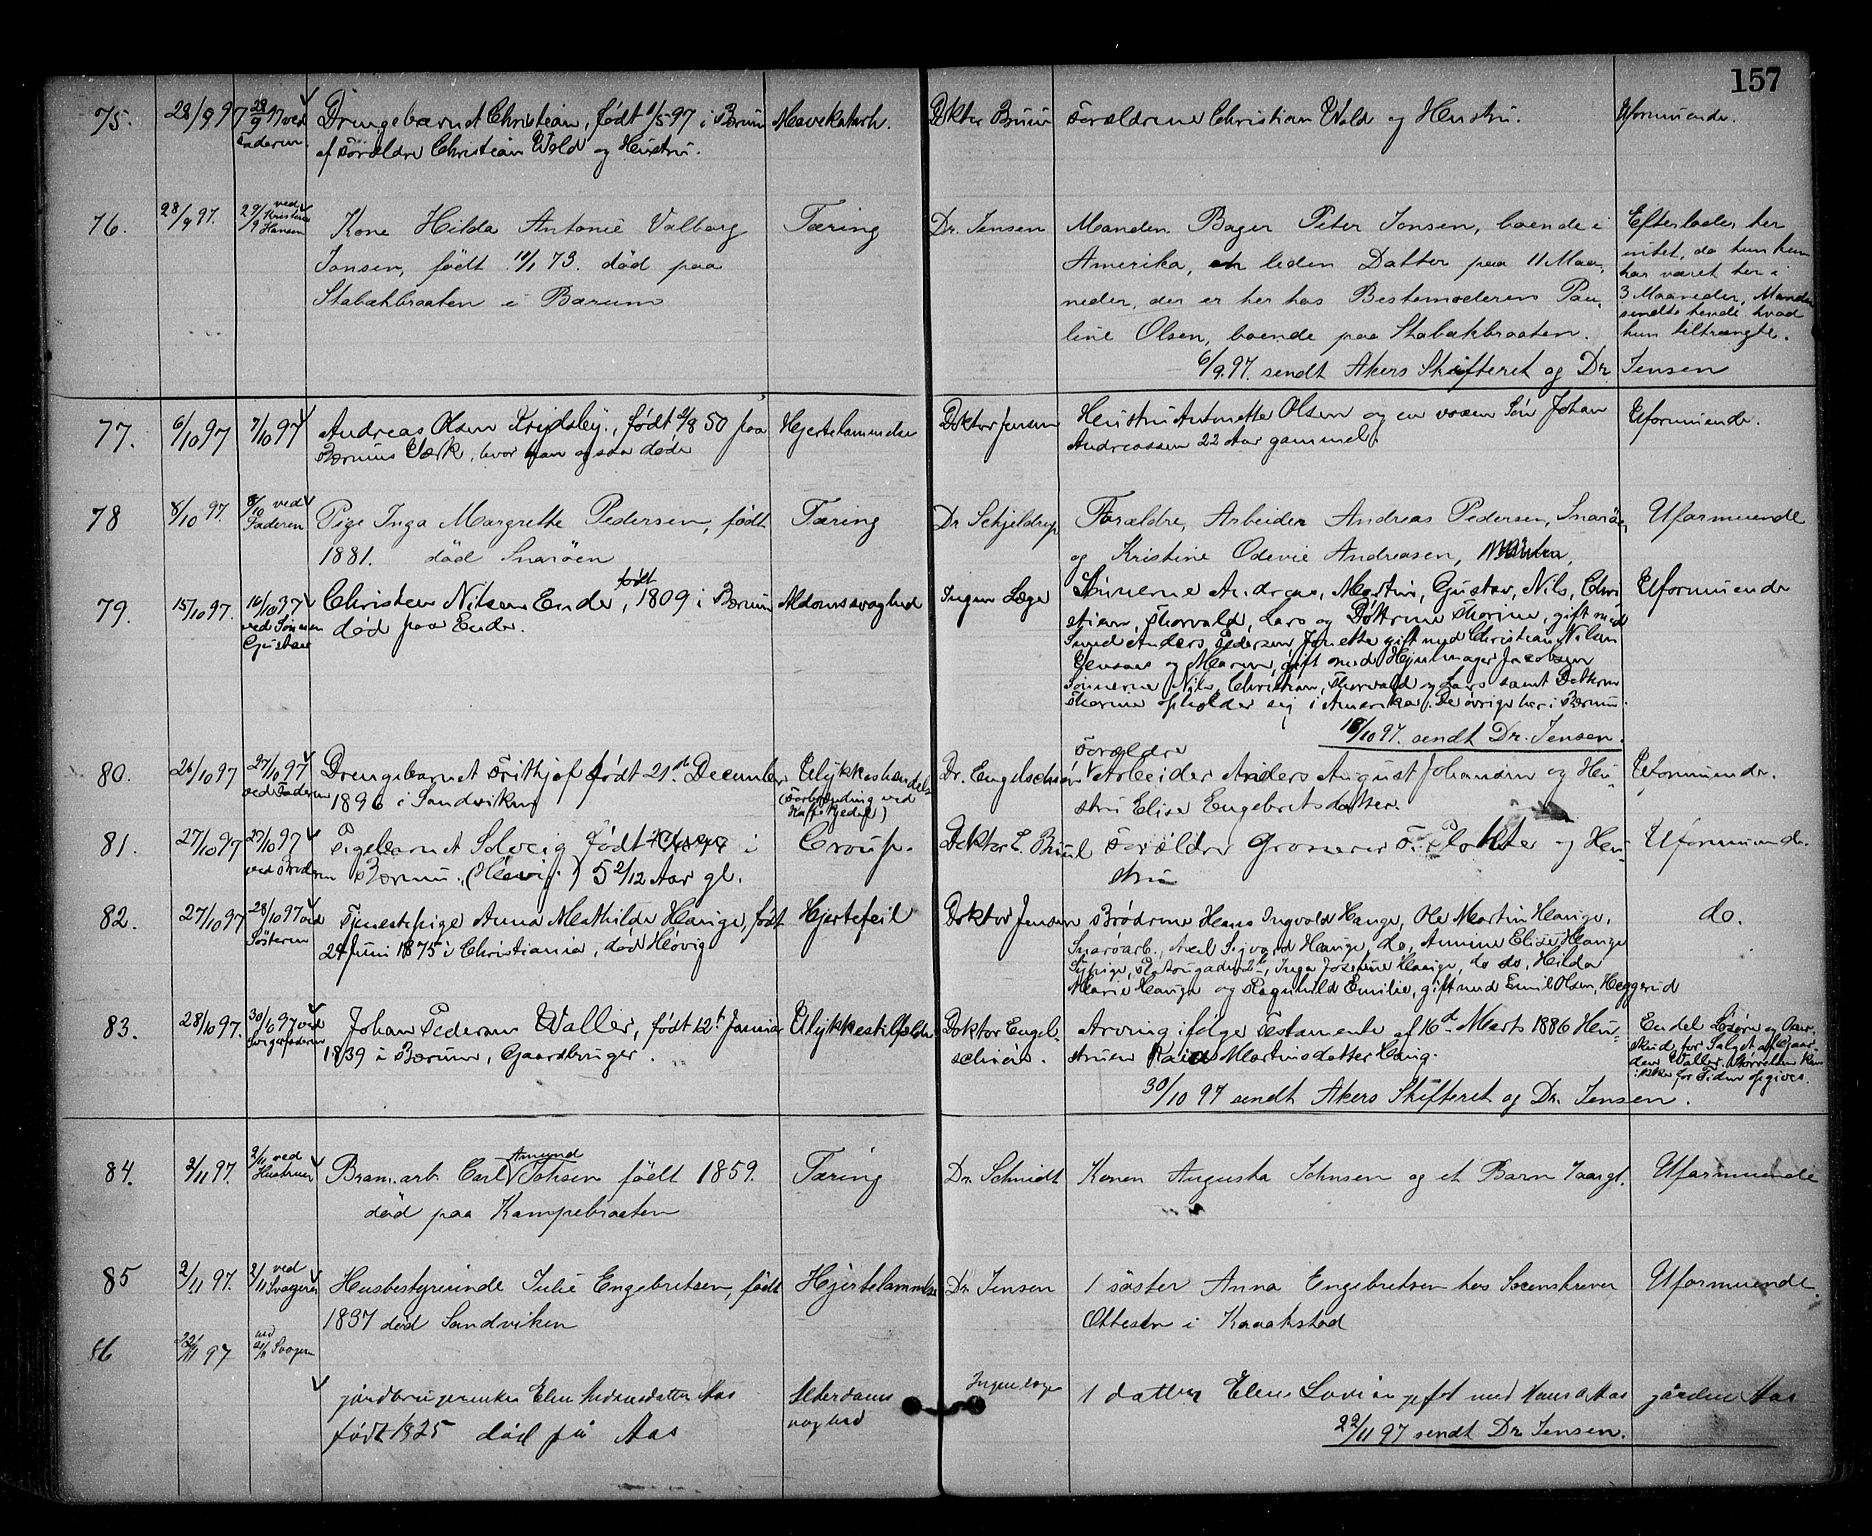 157
75. 28/9 97 28/9 97 ved Drengebarnet Christian, født 1/5 97 i Bærum Mavekatarh. Doktor Bruun Forældrene Christian Wold og Hustru. Uformuende.
Faderen af Forældre Christian Wold og Hustru.
76. 28/9 97. 29/9 ved Kristine Hansen Kone Hilda Antonie Valborg Tæring Dr. Jensen Manden Bager Peter Jonsen, boende i Efterlader her
Jonsen, født 11/1 73. død paa Amerika, en liden Datter paa 11 Maa- intet, da hun kun
Stabækbraaten i Bærum neder, der er her hos Bestemoderen Pau- har været her i
line Olsen, boende paa Stabækbraaten. 3 Maaneder, Manden
sendte hende hvad
hun tiltrængte.
6/9.97. sendt Akers Skifteret og Dr. Jensen
77. 6/10 97 7/10 97 Andreas Olsen Krydsby, født 2/8 50 paa Hjertelammelse Doktor Jensen Hustru Antonette Olsen og en voxen Søn Johan Uformuende.
Bærums Værk, hvor han ogsaa døde Andreassen 22 Aar gammel.
78 8/10 97. 8/10 ved Faderen Pige Inga Margrethe Pedersen, født Tæring Dr Schjeldrup Forældre, Arbeider Andreas Pedersen, Snarøen, Uformuende
1881. død Snarøen og Kristine Odevie Andreasen,
79. 15/10 97. 16/10 97 ved Sønnen Gustav Christen Nilsen Ender, født 1809 i Bærum Aldomssvaghed Ingen Læge Sønnerne Andreas, Martin, Gustav, Nils, Chri- Uformuende
død paa Ender. stian, Thorvald, Lars og Døttrene Thorine, gift med
Smed Anders Pedersen, Jonette gift med Christian Nilsen
Jensen og Maren, gift med Hjulmager Jacobsen
Sønnerne Nils, Christian, Thorvald og Lars samt Datteren
Thorine opholder sig i Amerika. De øvrige her i Bærum.
18/10 97. sendt Dr. Jensen.
80. 26/10 97 27/10 97 ved Faderen Drengebarnet Frithjof født 21de December Ulykkeshendelse Dr. Engelschiøn Forældre Arbeider Anders August Johansen og Hu- Uformuende.
1896 i Sandviken (Forbrænding ved Kaffekjedel) stru Elise Engebretsdatter.
81. 27/10 97 27/10 97 ved Broderen Pigebarnet Solveig født i Croup. Doktor E. Bruul Forældre Grosserer F. Plahte og Hu- Uformuende.
Bærum. (Høvig.) 5 2/12 Aar gl. stru
82. 27/10 97 28/10 97 ved Søsteren Tjenestepige Anna Mathilde Hauge, født Hjertefeil Doktor Jensen Brødrene Hans Ingvald Hauge, Ole Martin Hauge, do.
24 Juni 1875 i Christiania, død Høvig Snarøarb., Axel Sigvard Hauge, do, Annine Elise Hauge
Sypige, Inga Josefine Hauge, do do, Hilda
Marie Hauge og Ragnhild Emilie, gift med Emil Olsen, Heggerud
83. 28/10 97. 30/10 97 ved Svigerfaderen Johan Pedersen Waller, født 12te Januar Ulykkestilfælde Doktor Engel- Arving ifølge Testamente af 16de Marts 1886 Hu- En del Løsøre og Over-
1839 i Bærum, Gaardbruger. schiøn. struen Karen Martinsdatter Haug. skud for Salget af Gaar-
den Waller. Størrelsen kan
ikke for Tiden opgives.
30/10 97 sendt Akers Skifteret og Dr. Jensen.
84. 2/11 97. 2/11 ved Hustruen Bramarb. Carl Amund Johsen født 1859. Tæring Dr. Schmidt Konen Augusta Johnsen og et Barn 7 aargl. Uformuende
død paa Kampebraaten
85 2/11 97. 2/11 ved Svogeren Husbestyrerinde Julie Engebretsen, født Hjertelammelse Dr. Jensen 1 søster Anna Engebretsen hos Sorenskriver Uformuende.
1837 død Sandviken Ottesen i Kaaakstad
86 22/11 97 ved Svogeren
gårdbrugerenke Elen Aas Alderdoms Ingen læge 1 datter Elens Lovise gift med Hans A Aas gården Aas
født 1825 død på Aas svaghed
22/11 97 sendt Dr. Jensen.